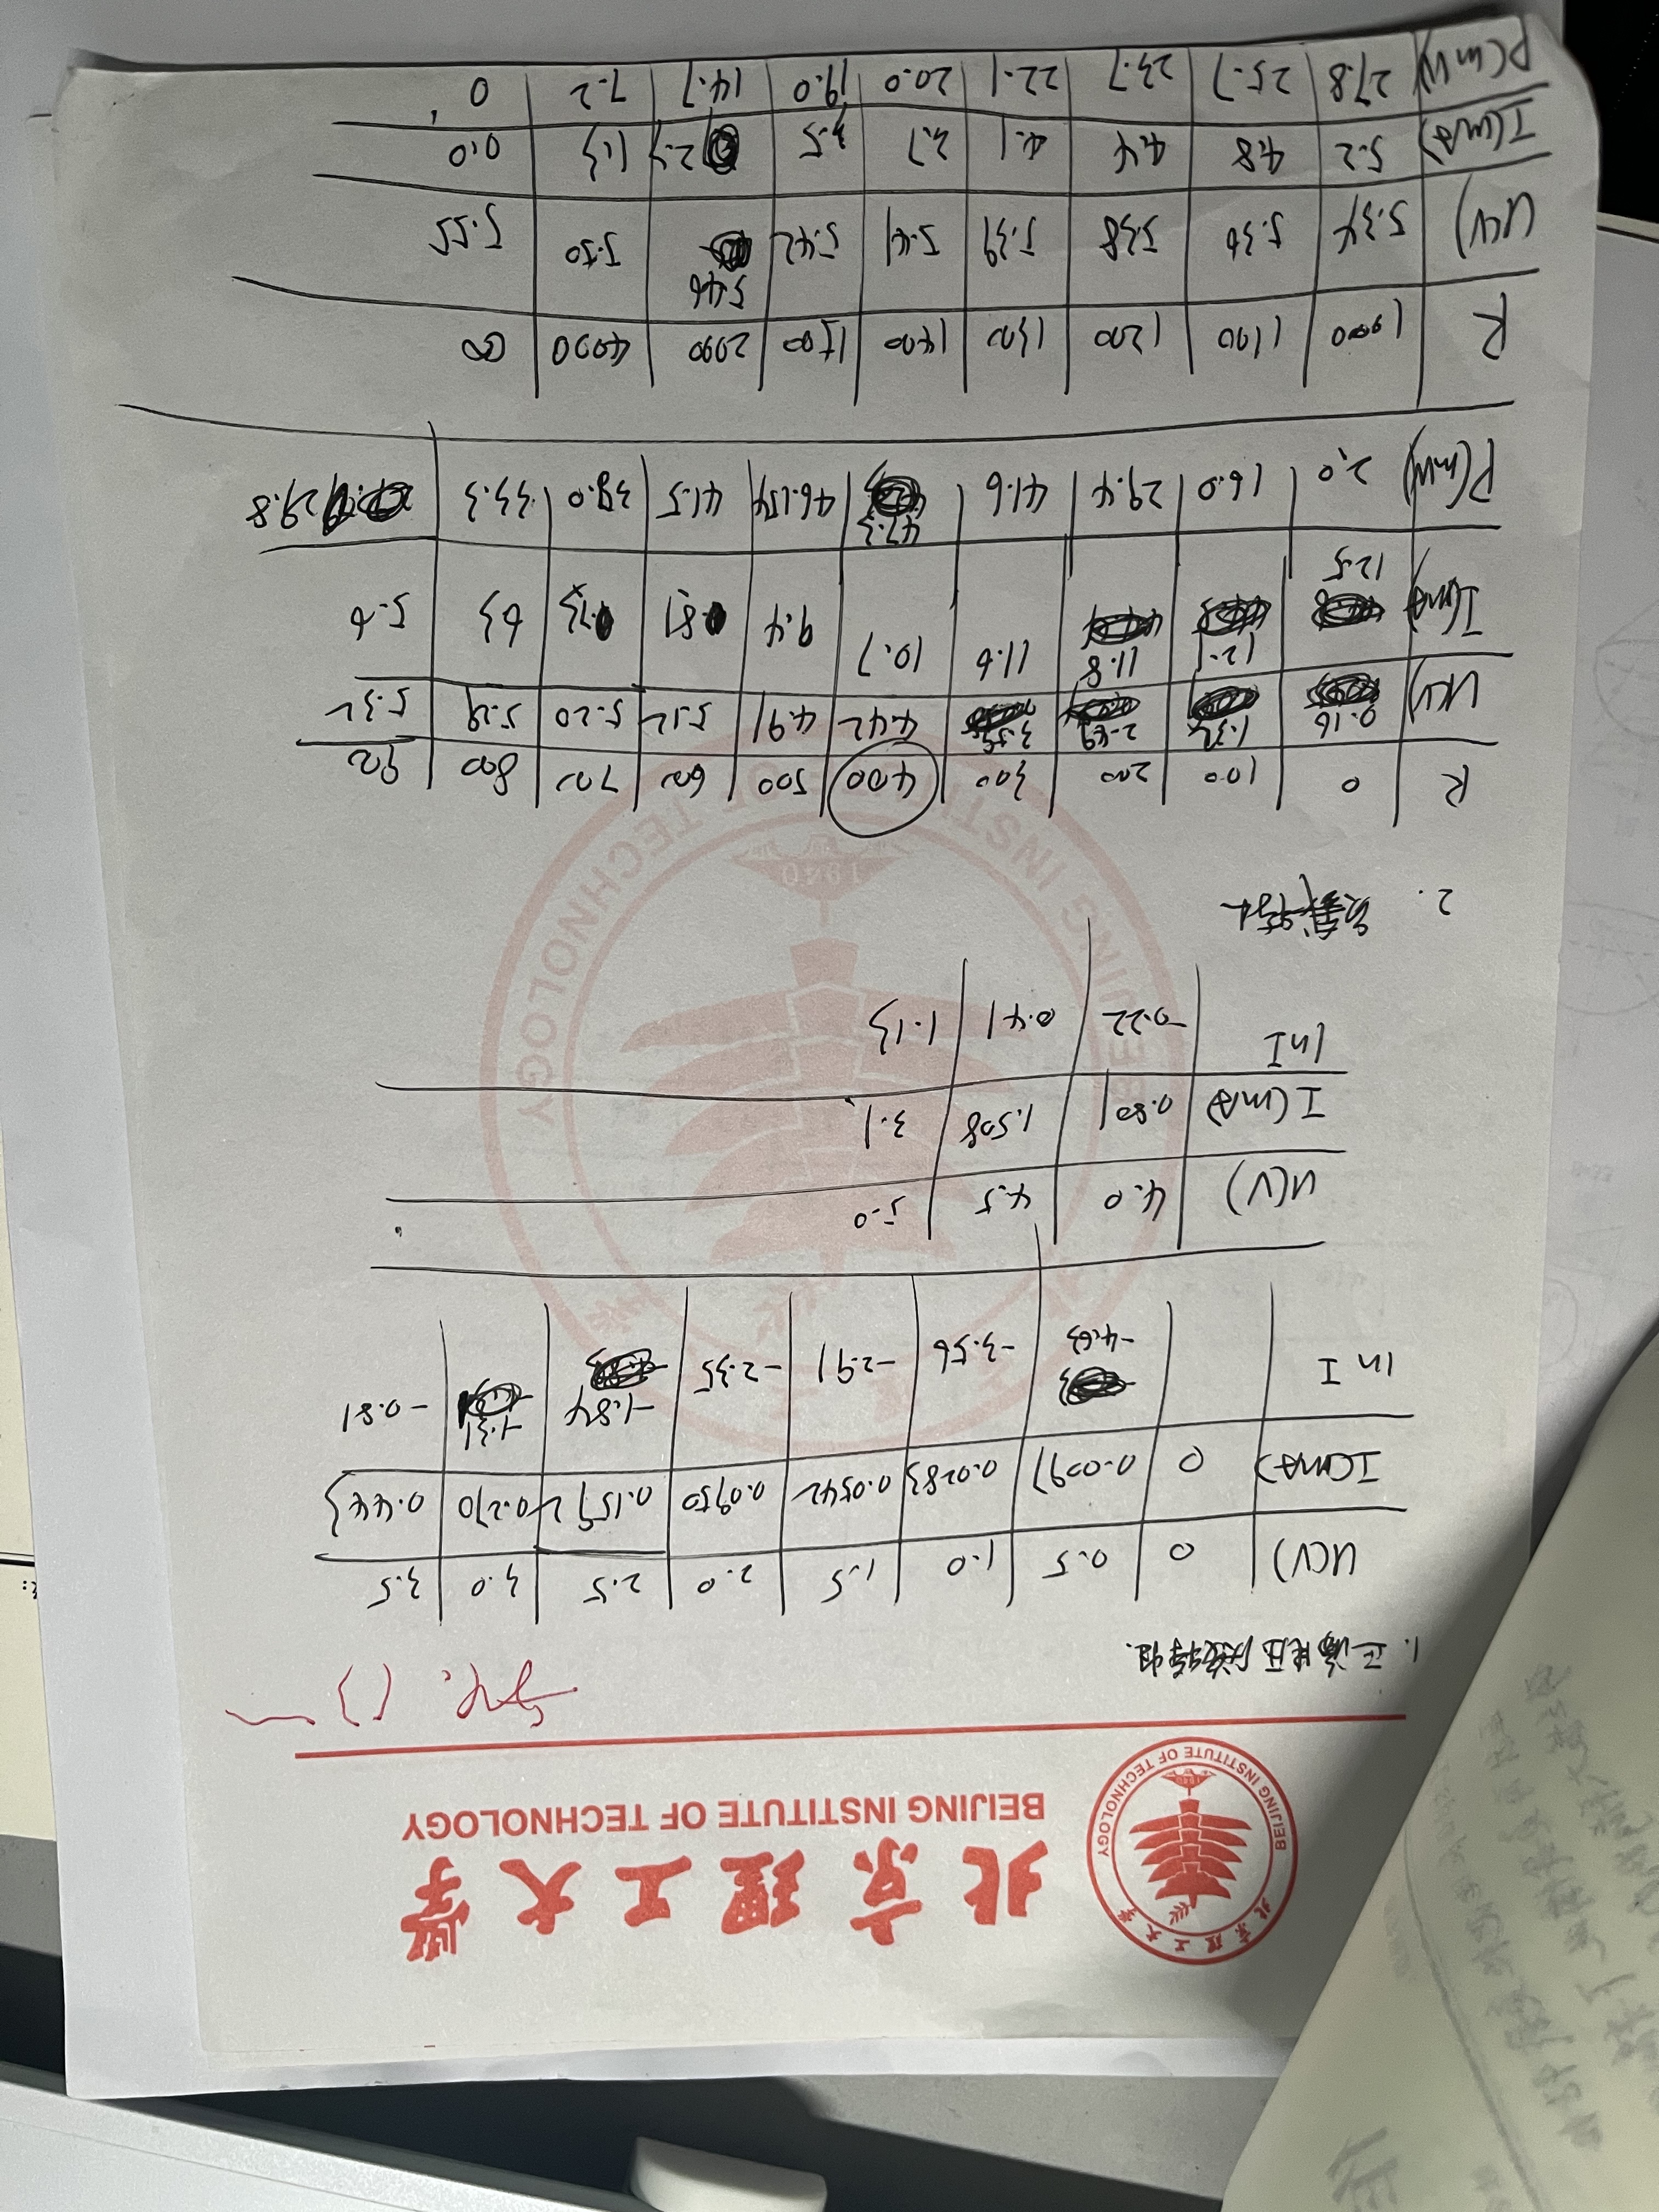 北京理工大学
BEIJING INSTITUTE OF TECHNOLOGY
北京理工大学
BEIJING INSTITUTE OF TECHNOLOGY
1940
1. 正偏电压伏安特性.
U(V) 0 0.5 1.0 1.5 2.0 2.5 3.0 3.5
I(mA) 0 0.0097 0.0283 0.0542 0.0950 0.1592 0.270 0.443
ln I -4.63 -3.56 -2.91 -2.35 -1.84 -1.31 -0.81
U(V) 4.0 4.5 5.0
I(mA) 0.801 1.508 3.1
ln I -0.22 0.41 1.13
2. 负载特性
R 0 100 200 300 400 500 600 700 800 900
U(V) 0.16 1.32 2.49 3.59 4.42 4.91 5.12 5.20 5.29 5.32
I(mA) 12.5 12.1 11.8 11.6 10.7 9.4 8.1 7.3 6.3 5.6
P(mW) 2.0 16.0 29.4 41.6 47.3 46.154 41.5 38.0 33.3 29.8
R 1000 1100 1200 1300 1400 1500 2000 4000 ∞
U(V) 5.34 5.36 5.38 5.39 5.41 5.42 5.46 5.50 5.55
I(mA) 5.2 4.8 4.4 4.1 3.7 3.5 2.7 1.3 0.0
P(mW) 27.8 25.7 23.7 22.1 20.0 19.0 14.7 7.2 0
BEIJING INSTITUTE OF TECHNOLOGY
1940